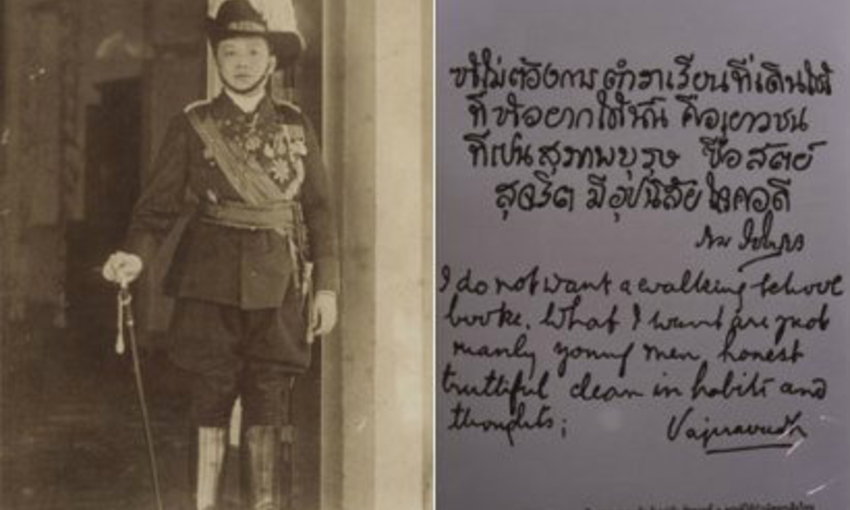 ข้าไม่ต้องการตำราเรียนที่เดินได้
ที่ข้าอยากได้นั้น คือเยาวชน
ที่เป็นสุภาพบุรุษ ซื่อสัตย์
สุจริต มีอุปนิสัย ใจคอดี
I do not want a walking school
books. What I want are just
manly young men, honest
truthful clean in habits and
thoughts;
Vajiravudh